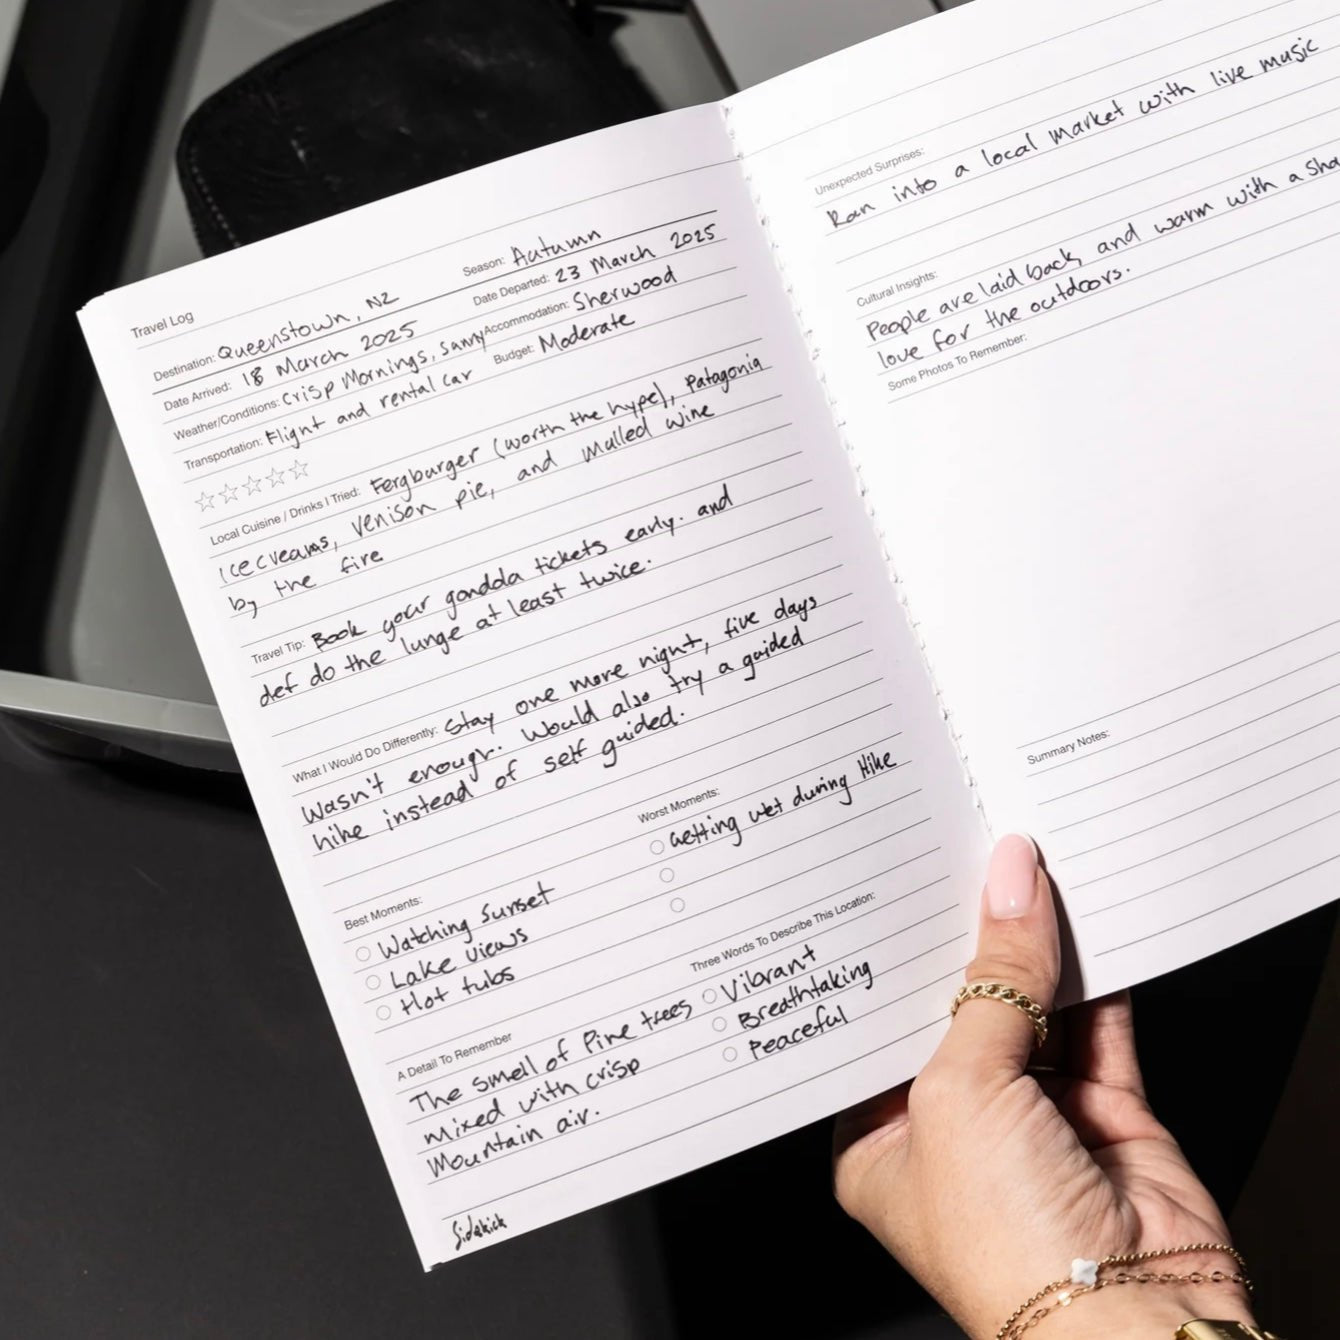 Travel Log
Destination: Queenstown, NZ Season: Autumn
Date Arrived: 18 March 2025 Date Departed: 23 March 2025
Weather/Conditions: Crisp Mornings, Sunny Accommodation: Sherwood
Transportation: Flight and rental car Budget: Moderate
Local Cuisine / Drinks I Tried: Fergburger (worth the hype), Patagonia
Icecreams, venison pie, and mulled wine
by the fire
Travel Tip: Book your gondola tickets early. and
def do the lunge at least twice.
What I Would Do Differently: Stay one more night, five days
Wasn't enough. Would also try a guided
hike instead of self guided.
Best Moments:
Watching Sunset
Lake views
Hot tubs
Worst Moments:
Getting wet during Hike
A Detail To Remember
The smell of Pine trees
mixed with crisp
Mountain air.
Three Words To Describe This Location:
Vibrant
Breathtaking
Peaceful
Sidekick
Unexpected Surprises:
Ran into a local market with live music
Cultural Insights:
People are laid back, and warm with a sha
love for the outdoors.
Some Photos To Remember:
Summary Notes: